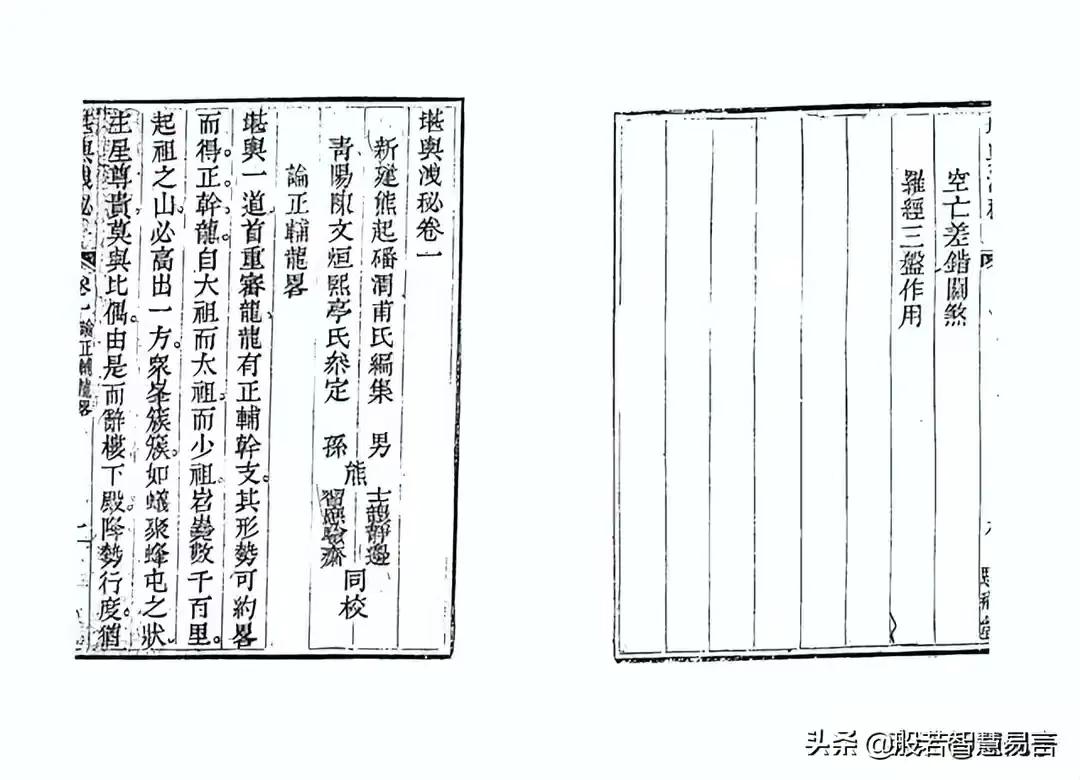 空亡差錯關煞
羅經三盤作用
堪輿洩秘卷一
新建熊起磻渭甫氏編集 男
青陽陳文烜熙亭氏叅定 孫
熊 同校
論正輔龍畧
堪輿一道首重審龍。龍有正輔幹支。其形勢可約畧
而得。正幹龍。自大祖而太祖。而少祖。數千百里。
起祖之山。必高出一方。衆峯簇簇。如蟻聚蜂屯之狀。
主星尊貴。莫與比偶。由是而辭樓下殿。降勢行度。猶
堪輿洩秘 卷一 論正輔龍畧
头条 @般若智慧易言